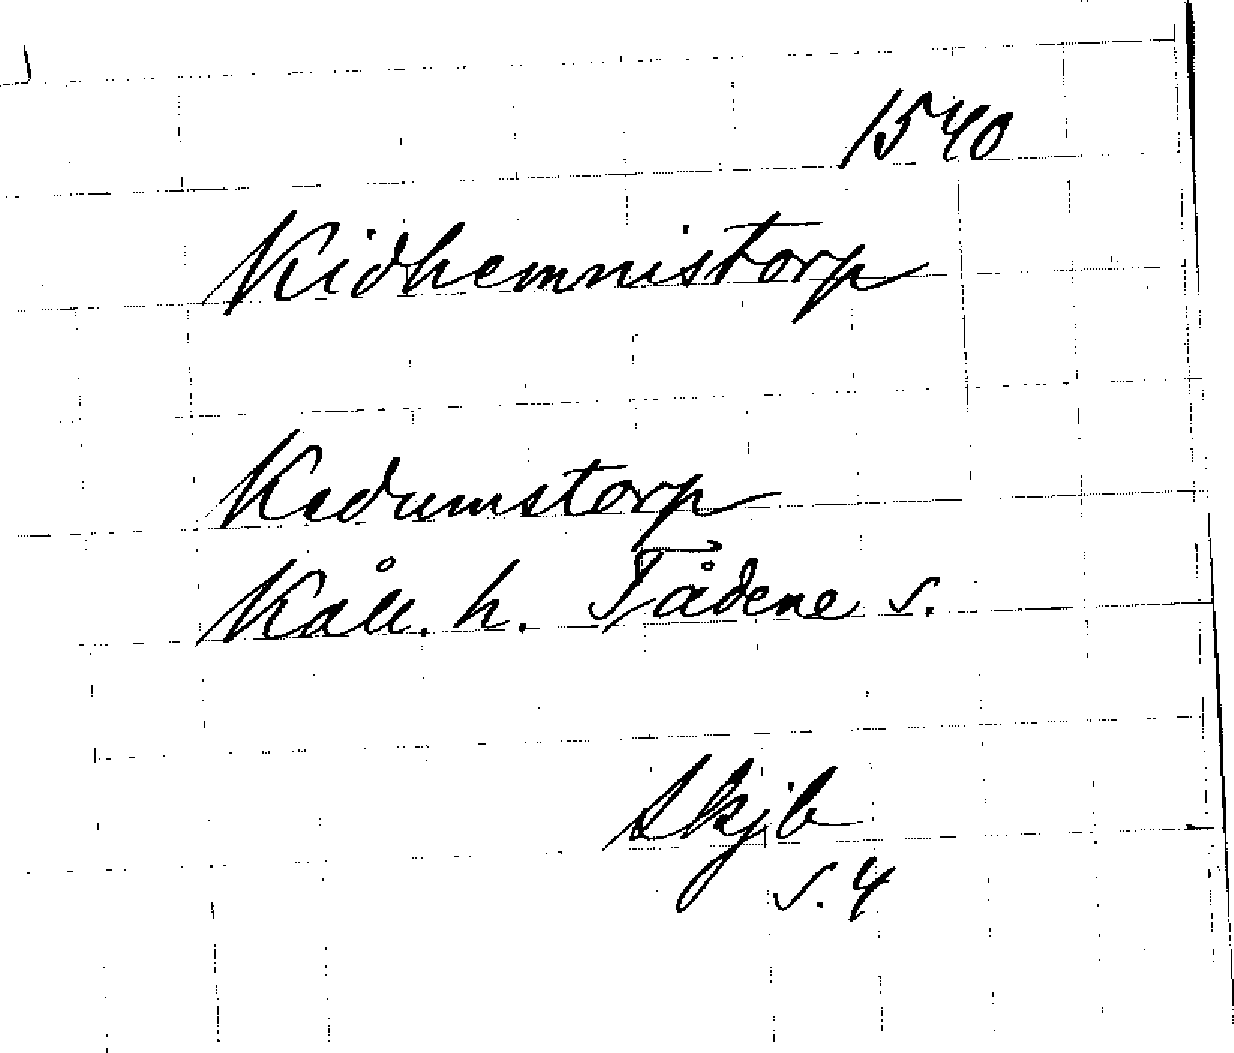 1540
Kidhemnistorp
Kedumstorp
Kåll. h. Tådene s.
Skjb
s. 4